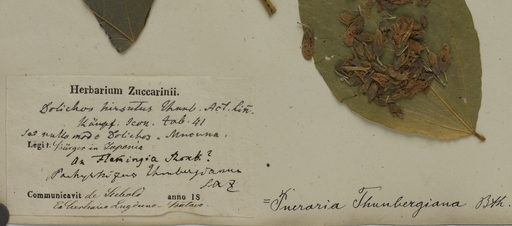 Herbarium Zuccarinii.
Dolichos hirsutus Thunb. Act. Lin.
Kämpf. Icon. tab. 41
nullo modo Dolichos. Mucuna.
Legit Bürger in Japonia
an Flemingia Roxb?
Pachyrhizus Thunbergianus
S. a Z
Communicavit de Siebold anno 18
Ex herbario Lugduno Batavo.
= Pueraria Thunbergiana Bth.